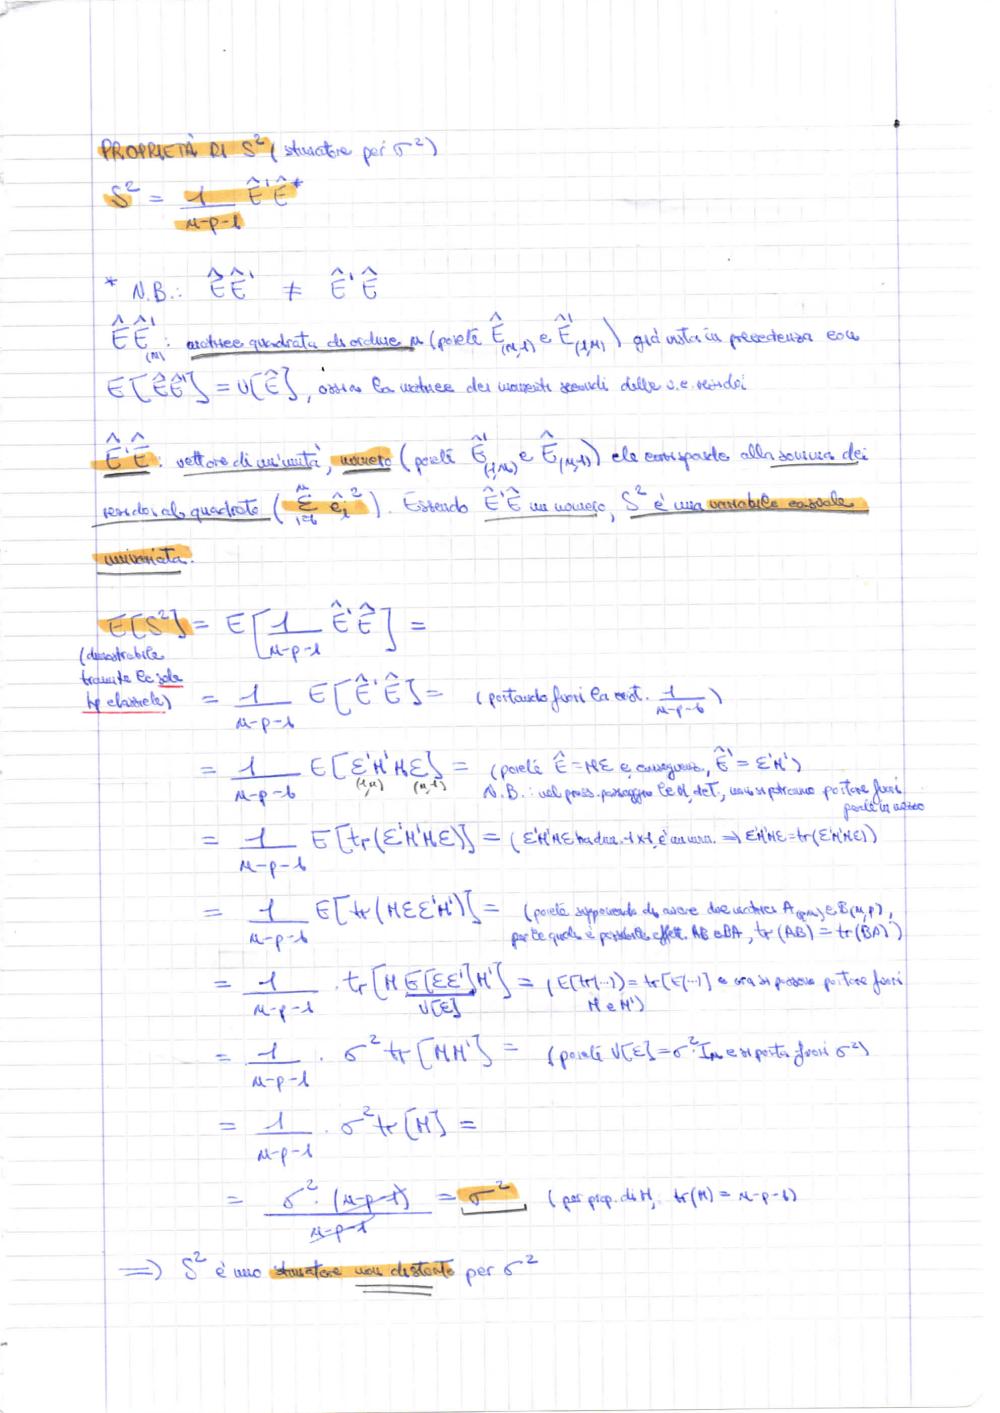 PROPRIETÀ DI S² (stimatore per σ²)
S² = 1/(n-p-1) Ê'Ê*
* N.B.: ÊÊ' ≠ Ê'Ê
ÊÊ'(n): matrice quadrata di ordine n (poiché Ê(n,1) e Ê'(1,n)) già vista in precedenza con
E[ÊÊ'] = V[Ê], ossia la matrice dei momenti secondi delle v.c. residui
Ê'Ê: vettore di un'unità, numero (poiché Ê'(1,n) e Ê(n,1)) che corrisponde alla somma dei
residui al quadrato (Σ êᵢ²). Essendo Ê'Ê un numero, S² è una variabile casuale
univariata.
E[S²] = E[1/(n-p-1) Ê'Ê] =
(dimostrabile
tramite le sole
hp classiche)
= 1/(n-p-1) E[Ê'Ê] = (portando fuori la cost. 1/(n-p-1))
= 1/(n-p-1) E[ε'M'Mε] = (poiché Ê = Mε e, conseguenza, Ê' = ε'M')
(1,n) (n,1) N.B.: nel pross. passaggio le M, det., non si potranno portare fuori
perché in mezzo
= 1/(n-p-1) E[tr(ε'M'Mε)] = (ε'M'Mε ha dim. 1x1, è un num. ⇒ ε'M'Mε = tr(ε'M'Mε))
= 1/(n-p-1) E[tr(Mεε'M')] = (poiché supponendo di avere due matrici A(p,n) e B(n,p),
per le quali è possibile effett. AB e BA, tr(AB) = tr(BA))
= 1/(n-p-1) · tr[M E[εε'] M'] = (E[tr(...)] = tr[E(...)] e ora si possono portare fuori
V[ε] M e M')
= 1/(n-p-1) · σ² tr[MM'] = (poiché V[ε] = σ²·Iₙ e si porta fuori σ²)
= 1/(n-p-1) · σ² tr[M] =
= σ²·(n-p-1)/(n-p-1) = σ² (per prop. di M, tr(M) = n-p-1)
⇒ S² è uno stimatore non distorto per σ²